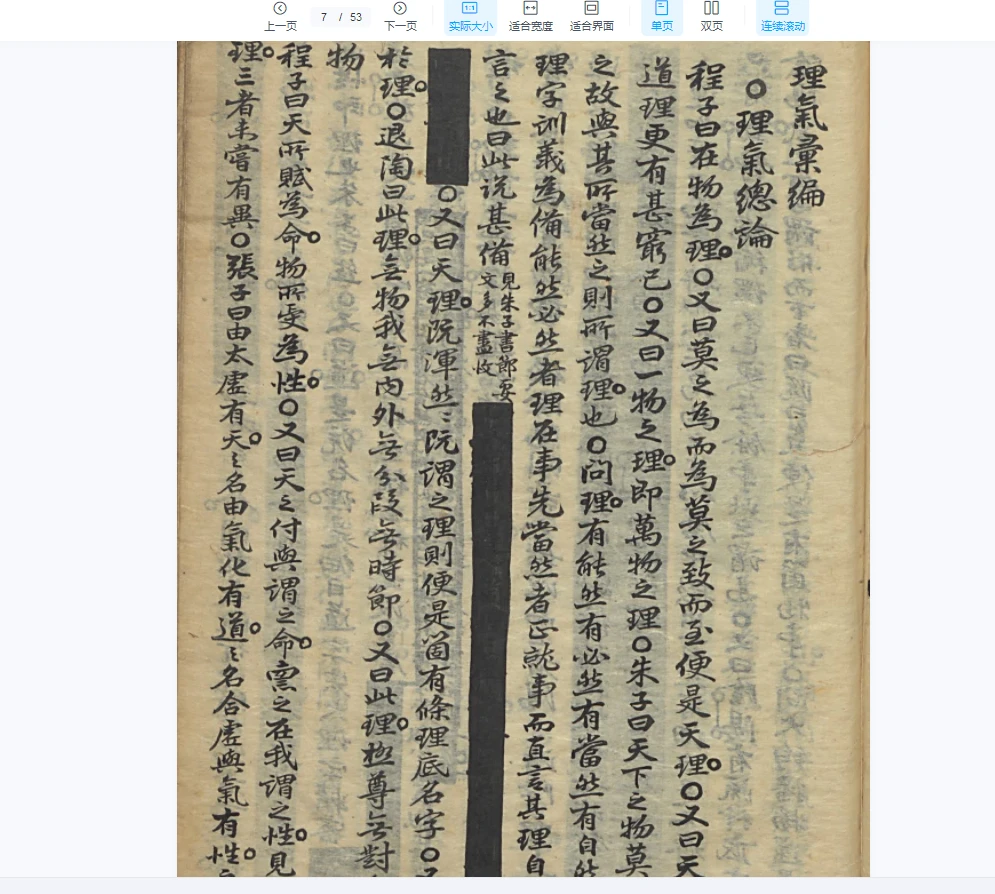 上一页
7 / 53
下一页
实际大小
适合宽度
适合界面
单页
双页
连续滚动
理氣彙編
○理氣總論
程子曰在物為理○又曰莫之為而為莫之致而至便是天理○又曰天
道理更有甚窮已○又曰一物之理即萬物之理○朱子曰天下之物莫
之故與其所當然之則所謂理也○問理有能然有必然有當然有自然
理字訓義為備能然必然者理在事先當然者正就事而直言其理自
言之也曰此說甚備見朱子書節要文多不盡收
○又曰天理既渾然〻既謂之理則便是箇有條理底名字○又
於理○退陶曰此理無物我無內外無分段無時節○又曰此理極尊無對
物
程子曰天所賦為命物所受為性○又曰天之付與謂之命稟之在我謂之性見
理三者未嘗有異○張子曰由太虛有天〻之名由氣化有道〻之名合虛與氣有性之